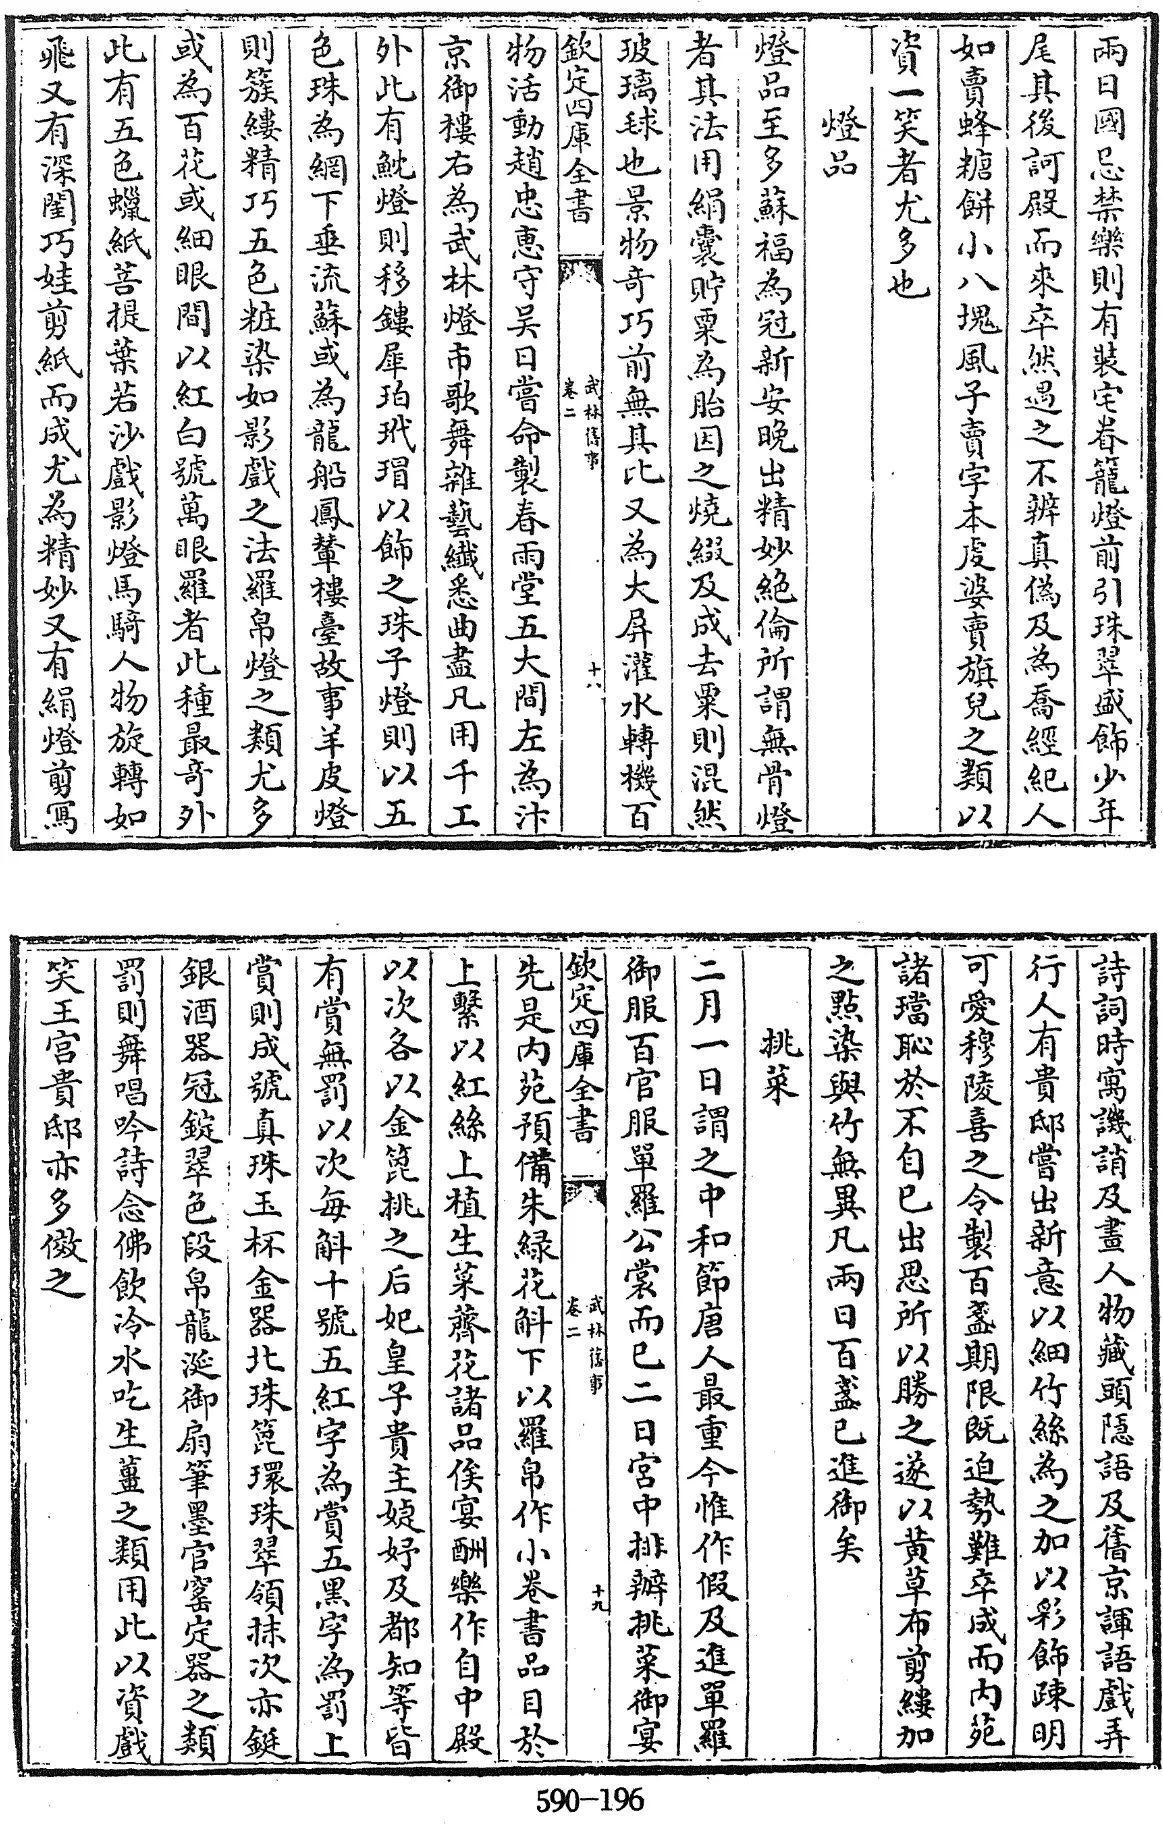 兩日國忌禁樂則有裝宅眷籠燈前引珠翠盛飾少年
尾其後訶殿而來卒然遇之不辨真偽及為喬經紀人
如賣蜂糖餅小八塊風子賣字本虔婆賣旗兒之類以
資一笑者尤多也
燈品
燈品至多蘇福為冠新安晚出精妙絶倫所謂無骨燈
者其法用絹囊貯粟為胎因之燒綴及成去粟則混然
玻璃毬也景物奇巧前無其比又為大屏灌水轉機百
欽定四庫全書
武林舊事
卷二
十八
物活動趙忠惠守吴日嘗命製春雨堂五大間左為汴
京御樓右為武林燈市歌舞雜藝纖悉曲盡凡用千工
外此有魫燈則移鏤犀珀玳瑁以飾之珠子燈則以五
色珠為網下垂流蘇或為龍船鳳輦樓臺故事羊皮燈
則簇縷精巧五色粧染如影戲之法羅帛燈之類尤多
或為百花或細眼間以紅白號萬眼羅者此種最奇外
此有五色蠟紙菩提葉若沙戲影燈馬騎人物旋轉如
飛又有深閨巧娃剪紙而成尤為精妙又有絹燈剪寫
詩詞時寓譏誚及畫人物藏頭隠語及舊京諢語戲弄
行人有貴邸嘗出新意以細竹絲為之加以彩飾疎明
可愛穆陵喜之令製百盞期限既迫勢難卒成而内苑
諸璫恥於不自已出思所以勝之遂以黄草布剪縷加
之點染與竹無異凡兩日百盞已進御矣
挑菜
二月一日謂之中和節唐人最重今惟作假及進單羅
御服百官服單羅公裳而已二日宫中排辦挑菜御宴
欽定四庫全書
武林舊事
卷二
十九
先是内苑預備朱緑花斛下以羅帛作小卷書品目於
上繫以紅絲上植生菜薺花諸品俟宴酬樂作自中殿
以次各以金箆挑之后妃皇子貴主婕妤及都知等皆
有賞無罰以次每斛十號五紅字為賞五黑字為罰上
賞則成號真珠玉杯金器北珠箆環珠翠領抹次亦鋌
銀酒器冠鋜翠色段帛龍涎御扇筆墨官窰定器之類
罰則舞唱吟詩念佛飲冷水吃生薑之類用此以資戲
笑王宫貴邸亦多傚之
590-196